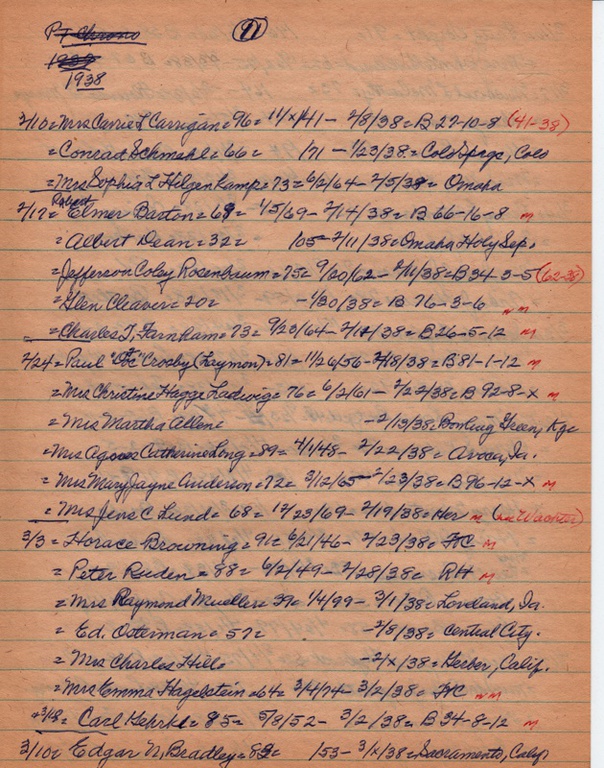 PT Chrono 71
1939
1938
2/10= Mrs Carrie L Carrigan= 96= 11/x/41 - 2/8/38= B 27-10-8 (41-38)
= Conrad Schmahl= 66= /71 - 1/23/38= Colo Spgs, Colo
= Mrs Sophia L Hilgenkamp= 73= 6/2/64 - 2/5/38= Omaha
Robert
2/17= Elmer Barton= 69= 1/5/69 - 2/14/38= B 66-16-8 m
= Albert Dean= 32= /05 - 2/11/38= Omaha Holy Sep.
= Jefferson Coley Rosenbaum= 75= 9/20/62 - 2/11/38= B 34-3-5 (62-38)
= Glen Cleaver= 20= - 1/30/38= B 76-3-6 nm
= Charles T, Farnham= 73= 9/23/64 - 2/12/38= B 26-5-12 m
2/24= Paul "Doc" Crosby (Laymon)= 81= 11/26/56 - 2/18/38= B 81-1-12 m
= Mrs Christine Hagge Ladwig= 76= 6/2/61 - 2/22/38= B 92-8-x m
= Mrs Martha Allen= - 2/13/38= Bowling Green, Ky=
= Mrs Agnes Catherine Long= 89= 4/1/48 - 2/22/38= Avoca, Ia.
= Mrs Mary Jayne Anderson= 72= 3/12/65 - 2/23/38= B 96-12-x m
= Mrs Jens C Lund= 68= 12/23/69 - 2/19/38= Her m
3/3= Horace Browning= 91= 6/21/46 - 2/23/38= HC m
= Peter Ruden= 88= 6/2/49 - 2/28/38= RH m
= Mrs Raymond Mueller= 39= 1/4/99 - 3/1/38= Loveland, Ia.
= Ed. Osterman= 57= - 2/8/38= Central City.
= Mrs Charles Hill= - 2/x/38= Gerber, Calif.
= Mrs Emma Hagelstein= 64= 3/4/74 - 3/2/38= HC nm
= Carl Gehrke= 85= 5/8/52 - 3/2/38= B 34-8-12 m
3/10= Edgar N, Bradley= 85= /53 - 3/x/38= Sacramento, Calif